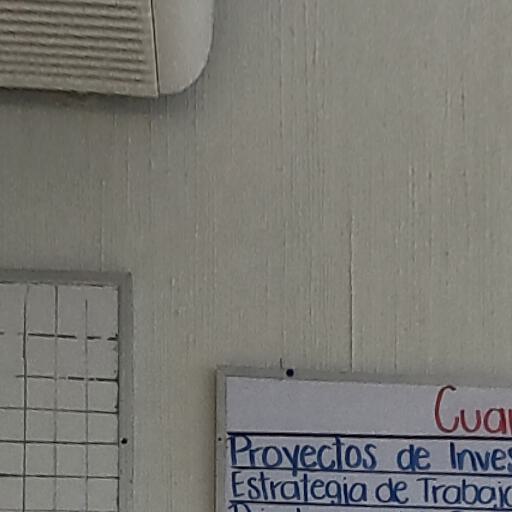 Cuar
Proyectos de Inves
Estrategia de Trabajo